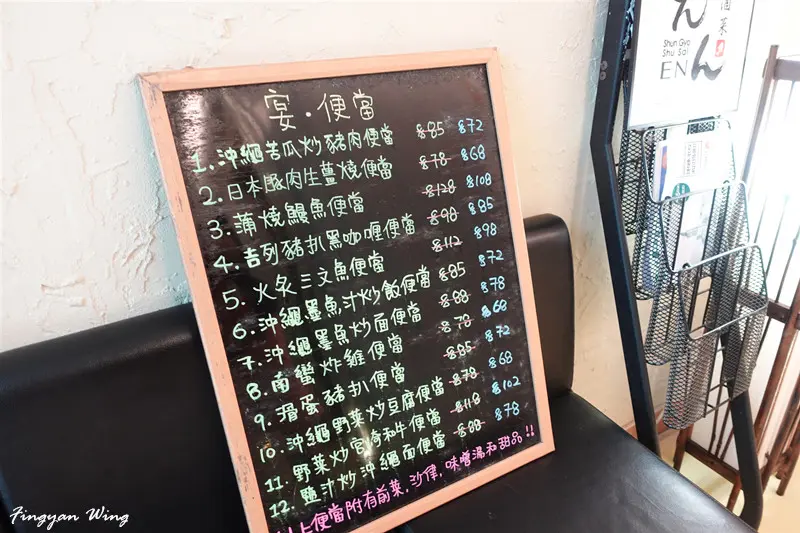 宴・便當
1. 沖繩苦瓜炒豬肉便當 $85 $72
2. 日本豚肉生薑燒便當 $78 $68
3. 蒲燒鰻魚便當 $128 $108
4. 吉列豬扒黑咖喱便當 $98 $85
5. 火炙三文魚便當 $112 $98
6. 沖繩墨魚汁炒飯便當 $85 $72
7. 沖繩墨魚炒面便當 $88 $78
8. 南蠻炸雞便當 $78 $68
9. 滑蛋豬扒便當 $85 $72
10. 沖繩野菜炒豆腐便當 $78 $68
11. 野菜炒宮崎和牛便當 $118 $102
12. 鹽汁炒沖繩面便當 $88 $78
以上便當附有前菜,沙律,味噌湯和甜品!!
えん
Shun Gyo
Shu Sai
EN
Fingyan Wing